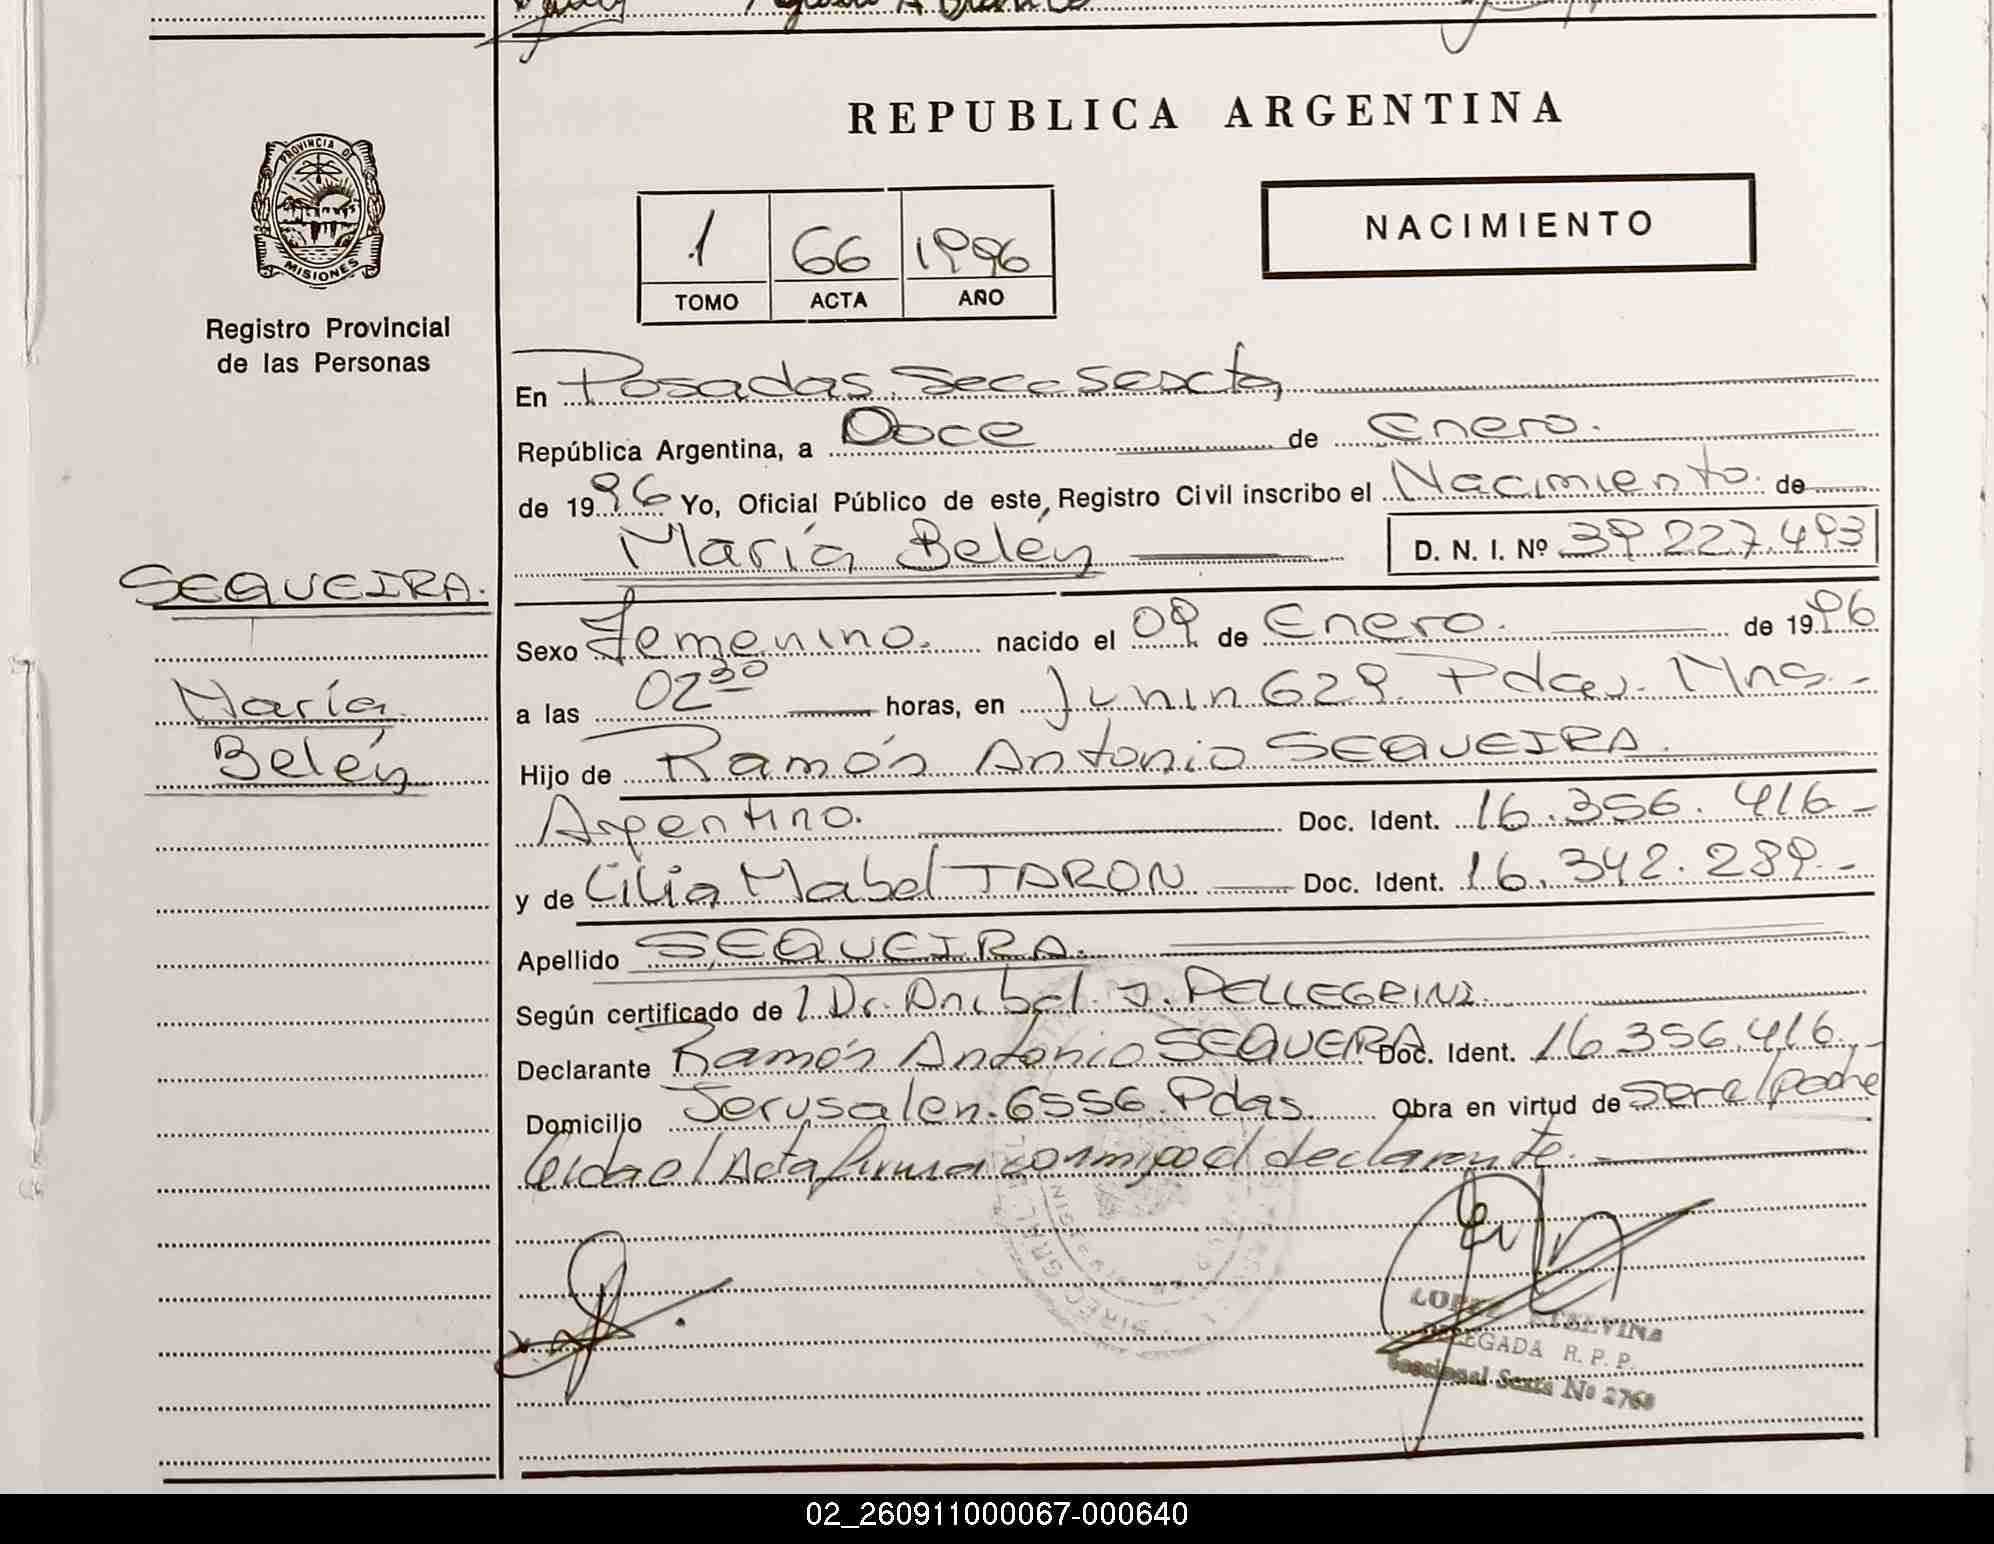 REPUBLICA ARGENTINA
PROVINCIA DE
MISIONES
Registro Provincial
de las Personas
NACIMIENTO
1 66 1996
TOMO ACTA AÑO
En Posadas. Secc Sexcta,
República Argentina, a Doce de Enero.
de 1996 Yo, Oficial Público de este Registro Civil inscribo el Nacimiento de
María Belén D. N. I. Nº 39.227.493
SEQUEIRA.
María
Belén
Sexo Femenino. nacido el 09 de Enero. de 1996
a las 02 30 horas, en Junin 629. Pdas. Mns.-
Hijo de Ramón Antonio SEQUEIRA.
Argentino. Doc. Ident. 16.356.416-
y de Lilia Mabel TARON Doc. Ident. 16.342.289.-
Apellido SEQUEIRA.
Según certificado de 1 Dr. Anibal. J. PELLEGRINI.
Declarante Ramón Antonio SEQUEIRA Doc. Ident. 16.356.416.-
Domicilio Jerusalen. 6556. Pdas. Obra en virtud de ser el padre
leida el Acta firma conmigo el declarante.-
LOPEZ ETELVINA
DELEGADA R. P. P.
Seccional Sexta Nº 2768
02_260911000067-000640